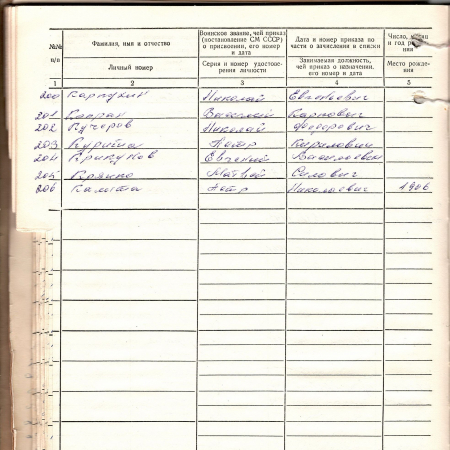 №№ п/п
Фамилия, имя и отчество
Личный номер
Воинское звание, чей приказ
(постановление СМ СССР)
о присвоении, его номер
и дата
Серия и номер удостове-
рения личности
Дата и номер приказа по
части о зачислении в списки
Занимаемая должность,
чей приказ о назначении,
его номер и дата
Число, месяц
и год рож-
Место рожде-
ния
1 2 3 4 5
200 Карпухин Николай Евгеньевич
201 Василий Карпович
202 Кучеров Николай Федорович
203 Петр Кирилович
204 Крикунов Евгений Васильевич
205 Матвей Силович
206 Петр Николаевич 1906